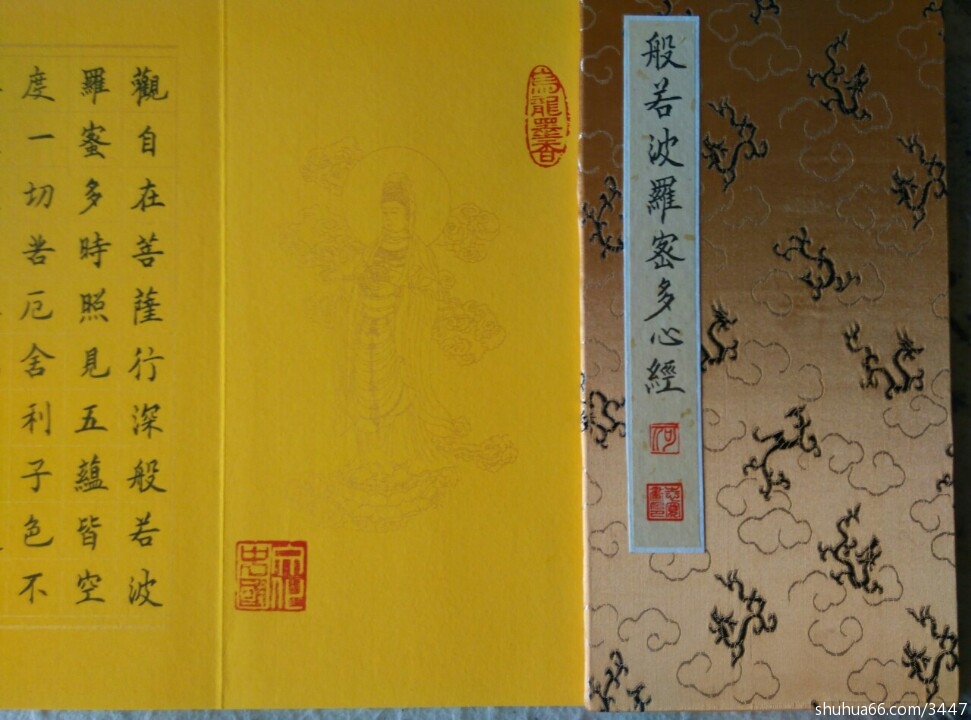 般若波羅蜜多心經
烏龍墨香
觀自在菩薩行深般若波
羅蜜多時照見五蘊皆空
度一切苦厄舍利子色不
shuhua66.com/3447